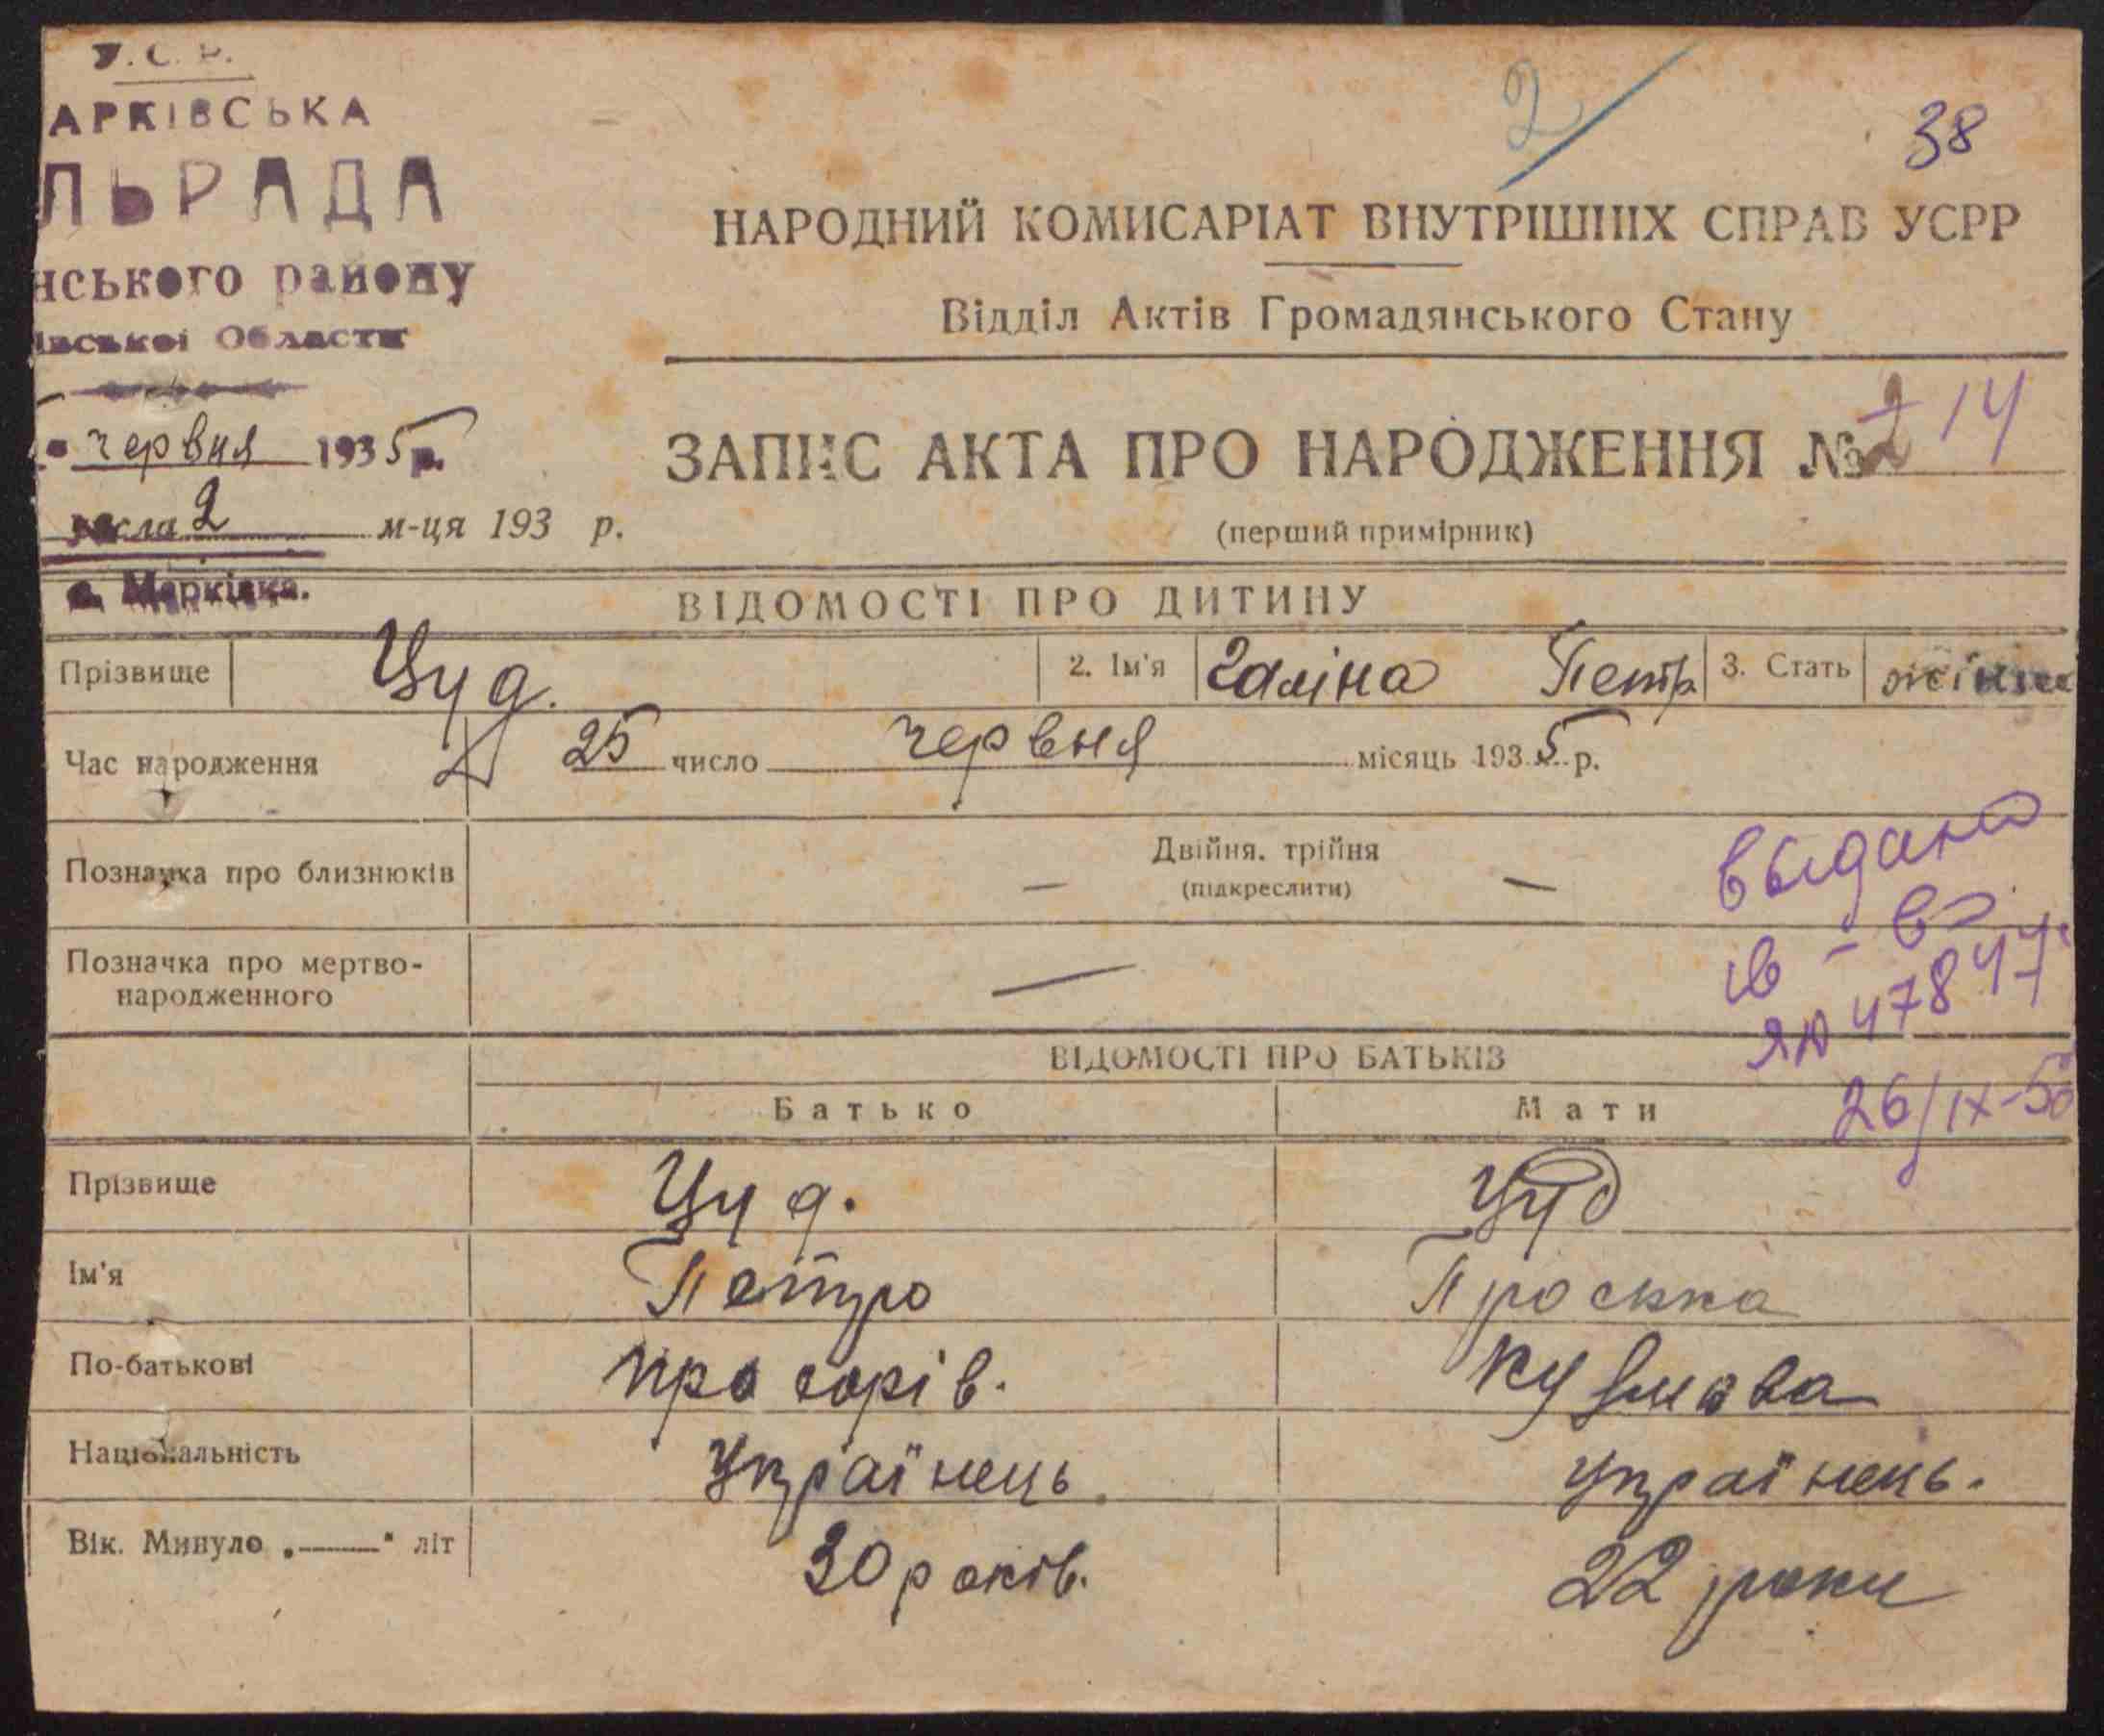 У.С.Р.
АРКІВСЬКА
ЛЬРАДА
нського району
івської Области
червня 1935 р.
числа 2 м-ця 193 р.
с. Марківка.
2
38
НАРОДНИЙ КОМИСАРІАТ ВНУТРІШНІХ СПРАВ УСРР
Відділ Актів Громадянського Стану
ЗАПИС АКТА ПРО НАРОДЖЕННЯ № 14
(перший примірник)
ВІДОМОСТІ ПРО ДИТИНУ
Прізвище Цуд. 2. Ім'я Галіна Петр 3. Стать жіноч
Час народження 25 число червня місяць 1935 р.
Позначка про близнюків — Двійня, трійня —
(підкреслити)
Позначка про мертво-
народженного —
выдано
св-во
ЯЮ 47847
26/IX-50
ВІДОМОСТІ ПРО БАТЬКІВ
Батько Мати
Прізвище Цуд. Цуд
Ім'я Петро Проська
По-батькові Кузмова
Національність Українець Українець.
Вік. Минуло „——" літ 30 років. 22 роки